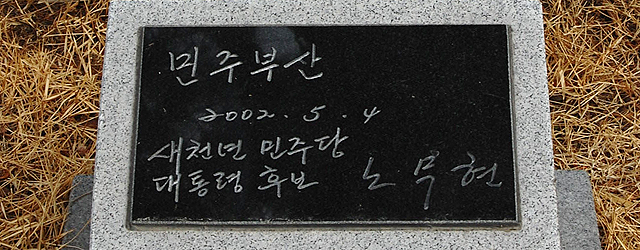 민주부산
2002. 5. 4
새천년 민주당
대통령 후보 노무현